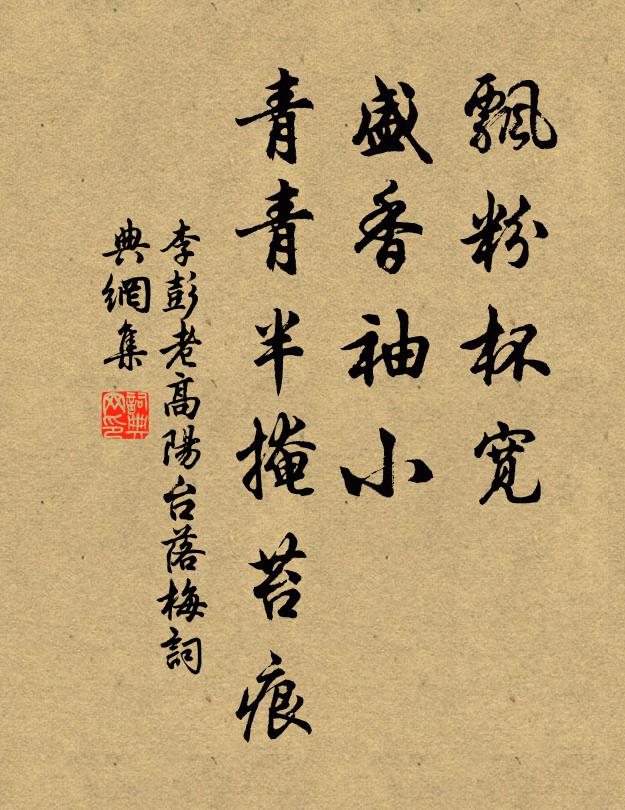 飄粉杯寬
盛香袖小
青青半掩苔痕
李彭老高陽台落梅詞
典網集
詞典网印